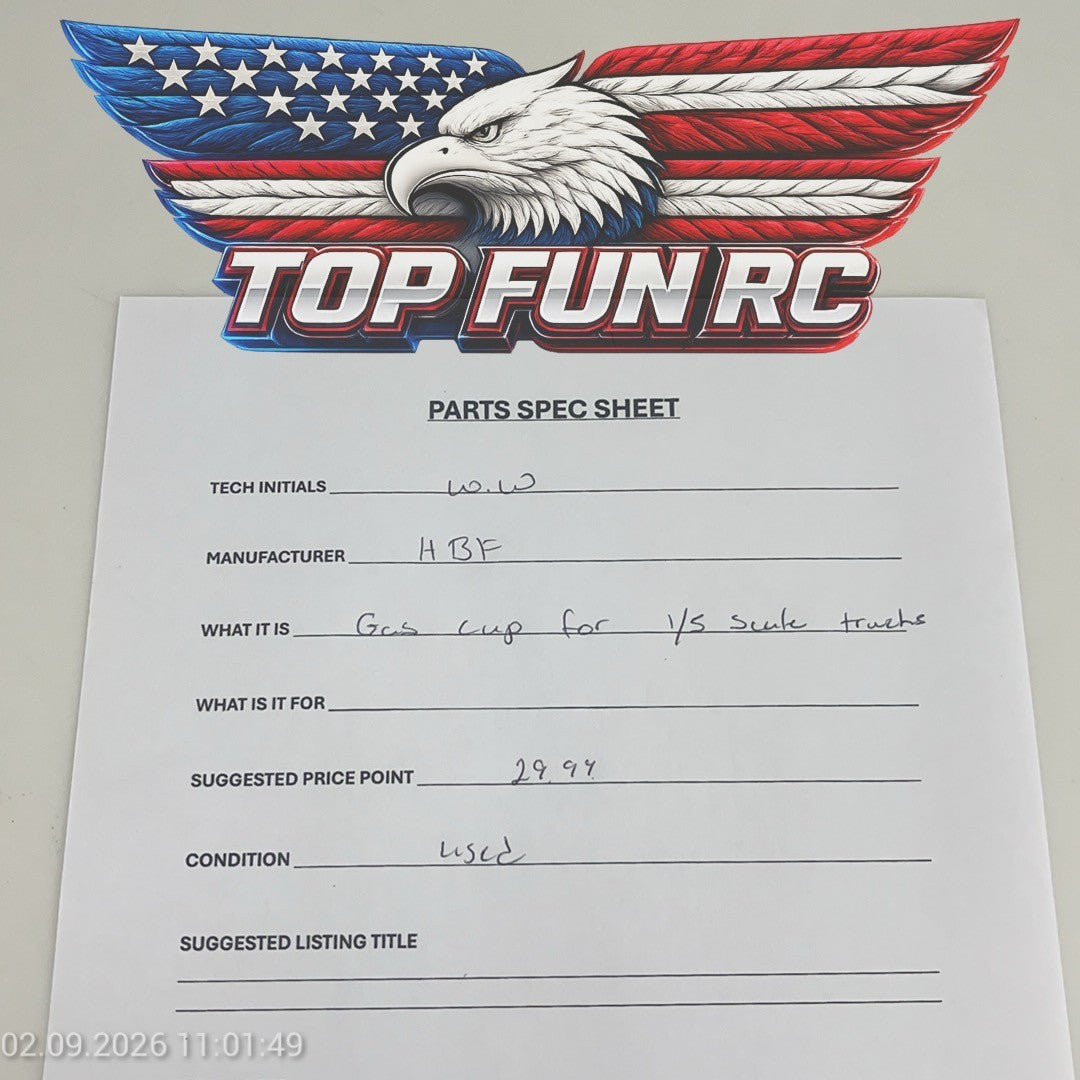 TOP FUN RC
PARTS SPEC SHEET
TECH INITIALS W.W
MANUFACTURER HBF
WHAT IT IS Gas cup for 1/5 scale trucks
WHAT IS IT FOR
SUGGESTED PRICE POINT 29.99
CONDITION used
SUGGESTED LISTING TITLE
02.09.2026 11:01:49